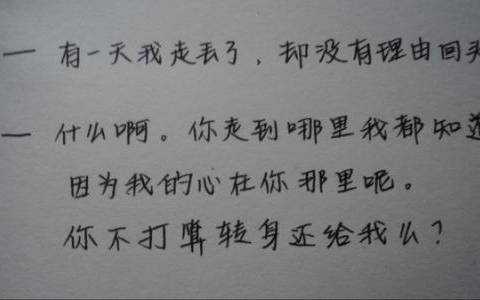 — 有一天我走丢了，却没有理由回
— 什么啊。你走到哪里我都知道
因为我的心在你那里呢。
你不打算转身还给我么？